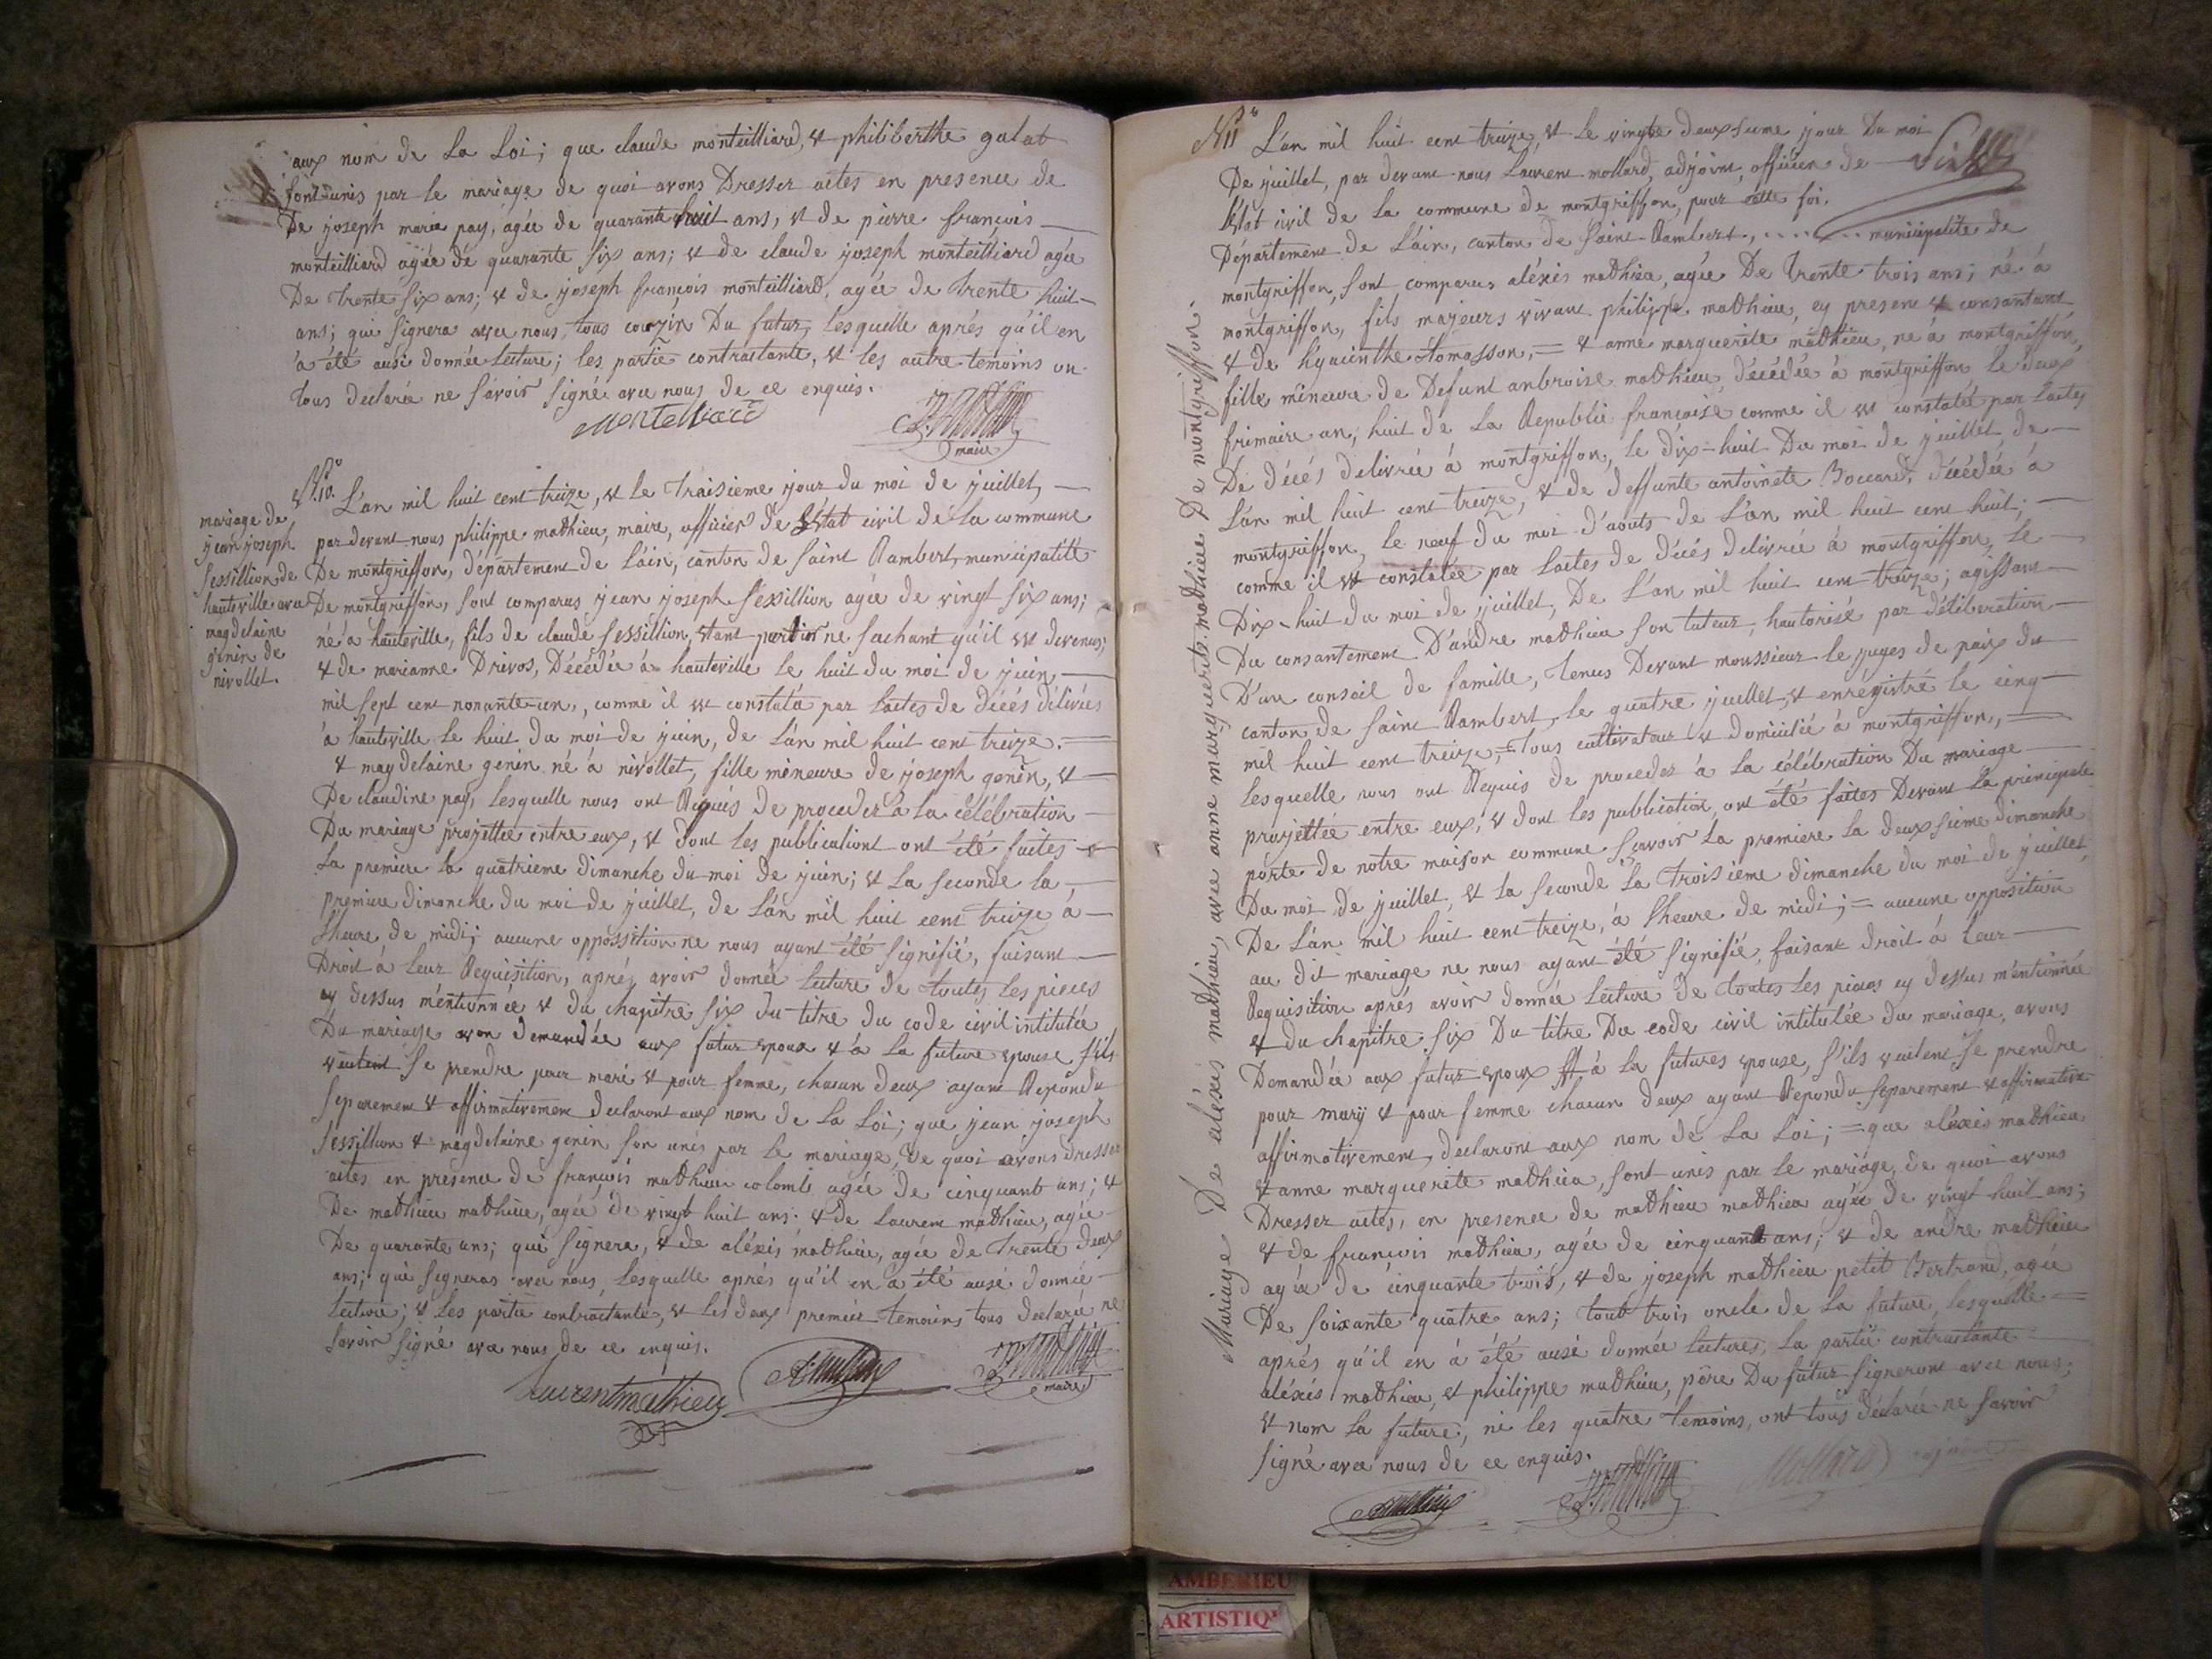 aux nom de La Loi; que claude monteilliard, et philiberthe galab
sont unis par le mariage de quoi avons Dresser actes en presence de
De joseph marie pay, agée de quarante huit ans, et de pierre francois
monteilliard agée de quarante six ans; et de claude joseph monteilliard agée
De trente six ans; et de joseph francois monteilliard, agée de trente huit
ans; qui signera avec nous, tous couzin Du futur, lesquelle aprés qu'il en
à été ausi donnée lecture; les partie contractante, et les autre temoins on
tous declarée ne savoir signé avec nous de ce enquis.
Monteilliard
P. Mathieu
maire
N.º 10. L'an mil huit cent treize, et le traisieme jour du moi de juillet,
par devant nous philippe mathieu, maire, officier de L'état civil de la commune
De montgriffon, département de Lain, canton de saint Rambert, municipalité
De montgriffon, sont comparus jean joseph Sessillion agée de vingt six ans;
né à hauteville, fils de claude Sessillion, étant partior ne sachant qu'il est devenus;
et de marianne Drivos, Décédée à hauteville le huit du moi de juin
mil sept cent nonante-un, comme il est constatée par lactes de décés délivrés
à hauteville Le huit du moi de juin, de L'an mil huit cent treize.
et magdelaine genin né à nivollet, fille mineure de joseph genin, et
De claudine pay, lesquelle nous ont Requis de proceder à la célébration
Du mariage projettée entre eux, et dont les publications ont été faites
La premiere la quatrieme dimanche du moi de juin; et la seconde la
premiere dimanche du moi de juillet, de L'an mil huit cent treize à
L'heure de midi; aucune oppossition ne nous ayant été signifié, faisant
Droit à leur Requisition, aprés avoir donnée lecture de toutes les pieces
cy dessus mentionnée et du chapitre six du titre du code civil intitulée
Du mariage avon demandée aux futur epoux et à la future epouse s'ils
veulent se prendre pour mari et pour femme, chacun deux ayant Repondu
Separement et affirmativement declaront aux nom de La Loi; que jean joseph
Sessillion et magdelaine genin son unis par le mariage, de quoi avons dresser
actes en presence de francois mathieu colomb agée de cinquante ans; et
De mathieu mathieu, agée de vingt huit ans. et de Laurent mathieu, agée
De quarante ans; qui signera, et de aléxis mathieu, agée de trente deux
ans; qui signeras avec nous, lesquelle aprés qu'il en a été ausi donnée
lecture; et les partie contractante, et les deux premier temoins tous declarée ne
savoir signé avec nous de ce enquis.
laurent mathieu
A. mathieu
P. Mathieu
maire
mariage de
jean joseph
Sessillion de
hauteville avec
magdelaine
genin de
nivollet.
N.º 11 L'an mil huit cent treize, et le vingte deuxsieme jour du moi
De juillet, par devant nous Laurent mollard, adjoint, officier de
L'état civil de la commune de montgriffon, pour cette foi.
Département de Lain, canton de Saint-Rambert, ..... municipalité de
montgriffon, sont comparus aléxis mathieu, agée De trente trois ans; né à
montgriffon, fils majeurs vivant philippe mathieu, cy present et consantant
et de hyacinthe tomasson, = et anne marguerite mathieu, né à montgriffon,
fille mineure de Defunt anbroise mathieu, décédée à montgriffon le deux
frimaire an, huit de La Republic française comme il est constatée par lactes
De décés delivrée à montgriffon, le dix-huit Du moi de juillet de
L'an mil huit cent treize, et de deffunte antoinete Boccard, décédée à
montgriffon, le neuf du moi d'aouts de L'an mil huit cent huit;
comme il est constatée par lactes de décés delivrée à montgriffon, le
Dix-huit du moi de juillet, De L'an mil huit cent treize; agissant
Du consantement D'andre mathieu son tuteur, hautorisé par déliberation
D'un conseil de famille, tenus Devant moussieur le juges de paix du
canton de Saint Rambert, le quatre juillet, et enrégistré le cinq
mil huit cent treize, = tous cultivateur et domicilié à montgriffon,
Lesquelle nous ont Requis de proceder à La célébration Du mariage
projettée entre eux, et dont les publication, ont été faites Devant La principale
porte de notre maison commune savoir La premiere la deuxsieme dimanche
Du moi de juillet, et la seconde la troisieme dimanche du moi de juillet
De L'an mil huit cent treize, à L'heure de midi; = aucune opposition
au dit mariage ne nous ayant été signifié, faisant droit à leur
Requisition aprés avoir donnée lecture de toutes les pieces cy dessus mentionnée
et du chapitre six Du titre Du code civil intitulée du mariage, avons
Demandée aux futur epoux et à la futures epouse, s'ils veulent se prendre
pour mary et pour femme chacun deux ayant Repondu separement et affirmative
affirmativement, declaront aux nom de La Loi; = que aléxis mathieu
et anne marguerite mathieu, sont unis par le mariage, de quoi avons
Dresser actes, en presence de mathieu mathieu agée de vingt huit ans;
et de francois mathieu, agée de cinquant ans; et de andre mathieu
agée de cinquante trois, et de joseph mathieu petit Bertrand, agée
De soixante quatre ans; tout trois oncle de La future, lesquelle
aprés qu'il en à été ausi donnée lectures, la partié contractante
aléxis mathieu, et philippe mathieu, pére Du futur signeront avec nous;
et nom La future, ni les quatre temoins, ont tous déclarée ne savoir
signé avec nous de ce enquis.
A mathieu
P. Mathieu
Mollard adjoint
Mariage De aléxis mathieu, avec anne marguerite mathieu De montgriffon.
AMBERIEU
ARTISTIQ